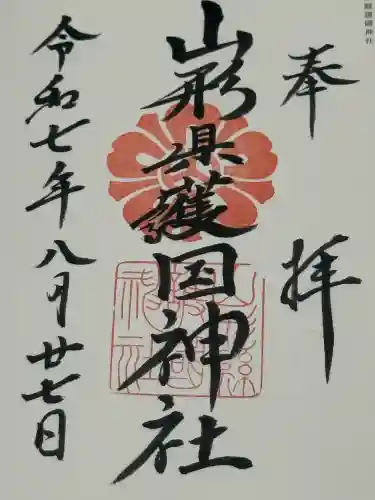 奉拝
山形県護国神社
令和七年八月廿七日